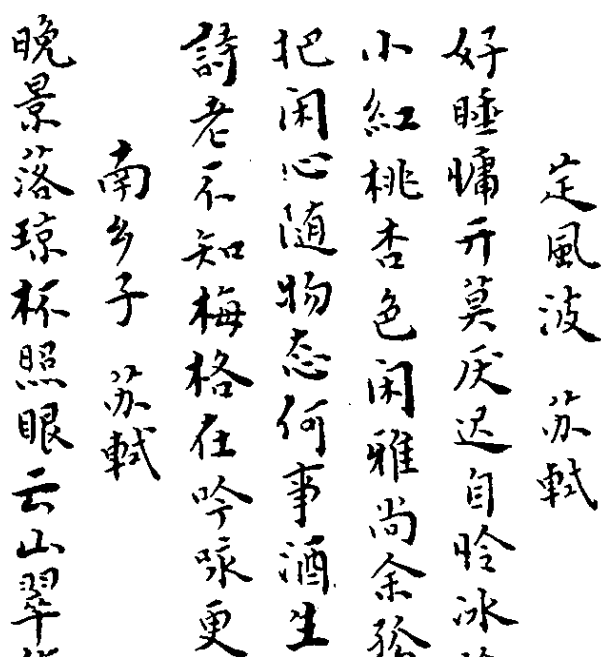 定風波 苏軾
好睡慵开莫厌迟自昤冰
小紅桃杏色闲雅尚余
把闲心随物态何事酒生
詩老不知梅格在吟咏更
南乡子 苏軾
晚景落琼杯照眼云山翠